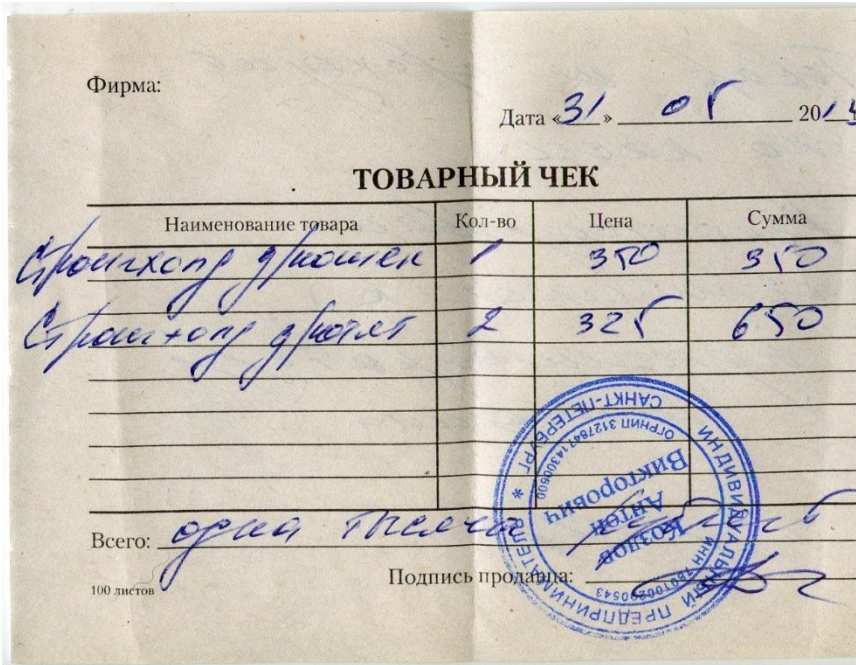 Фирма:
Дата «31» 05 2014
ТОВАРНЫЙ ЧЕК
Наименование товара Кол-во Цена Сумма
Стронгхолд 1 350 350
Стронгхолд 2 325 650
Всего: одна тысяча рублей
Подпись продавца:
100 листов
ИНДИВИДУАЛЬНЫЙ ПРЕДПРИНИМАТЕЛЬ * САНКТ-ПЕТЕРБУРГ
ОГРНИП
ИНН
Козлов
Антон
Викторович